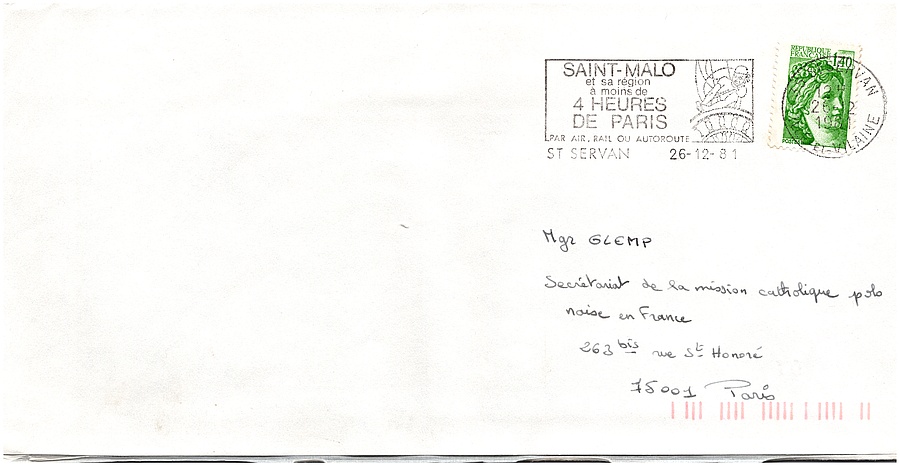 SAINT-MALO
et sa région
à moins de
4 HEURES
DE PARIS
PAR AIR, RAIL OU AUTOROUTE
ST SERVAN 26-12-81
REPUBLIQUE
FRANÇAISE
1,40
ET-VILAINE
Mgr GLEMP
Secrétariat de la mission catholique polo
naise en France
263 bis rue St Honoré
75001 Paris